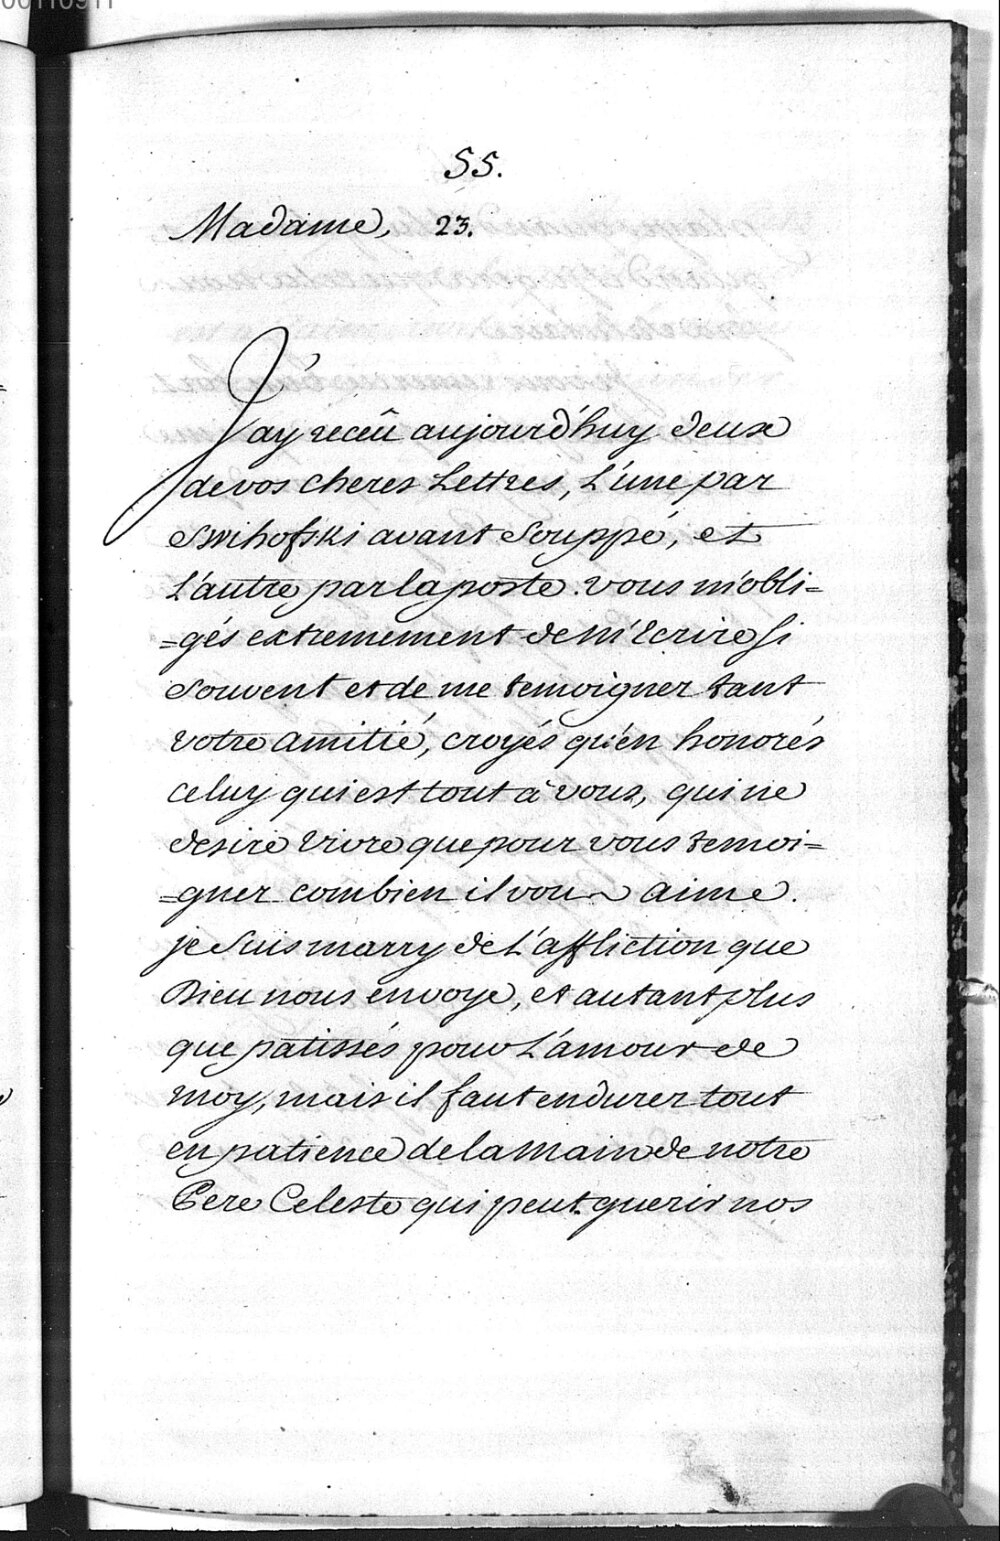 55.
Madame, 23.
J'ay reçeû aujourd'huy deux
de vos cheres Lettres, L'une par
Swihofski avant Souppé, et
L'autre par la poste. vous m'obli=
=gés extremement de m'Ecrire si
Souvent et de me temoigner tant
votre amitié, croyés qu'en honorés
celuy qui est tout à vous, qui ne
desire vivre que pour vous temoi=
=gner combien il vous aime.
je Suis marry de L'affliction que
Dieu nous envoye, et autant plus
que patissés pour L'amour de
moy, mais il faut endurer tout
en patience de la main de notre
Pere Celeste qui peut guerir nos